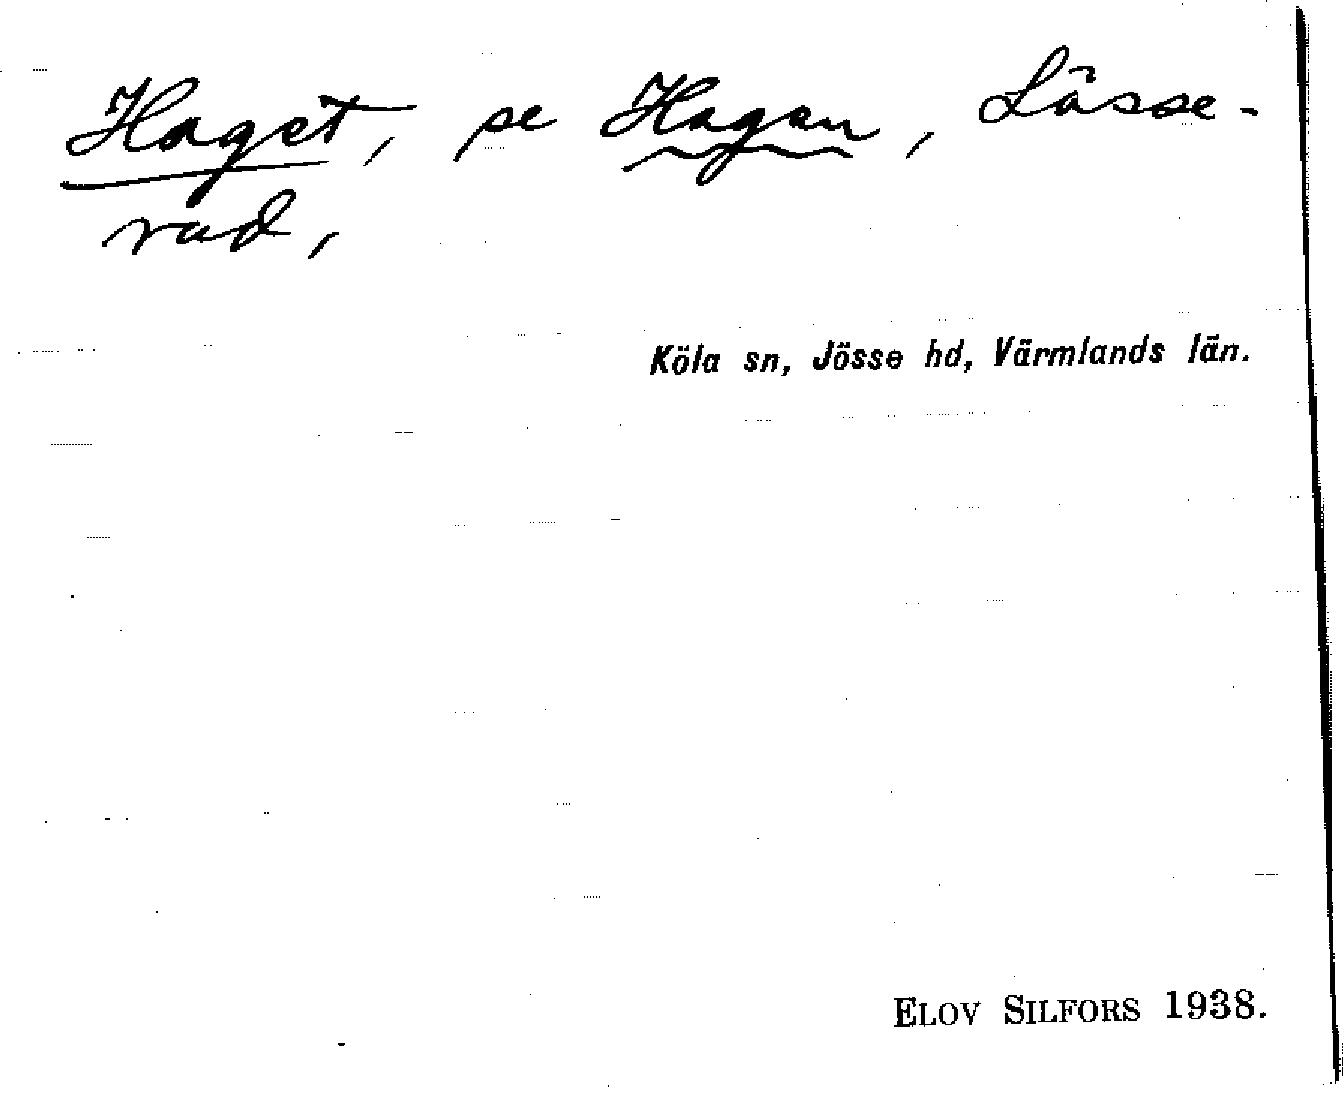 Haget, se Hagen, Lässe-
rud,
Köla sn, Jösse hd, Värmlands län.
ELOV SILFORS 1938.